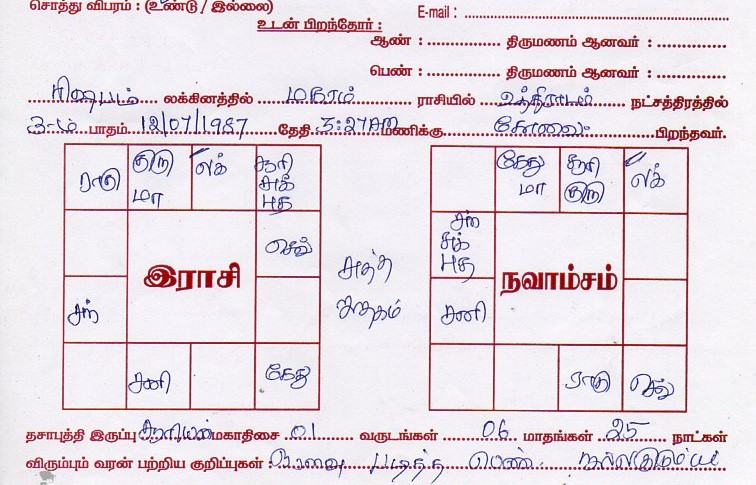 சொத்து விபரம் : (உண்டு / இல்லை) E-mail :
உடன் பிறந்தோர் :
ஆண் : திருமணம் ஆனவர் :
பெண் : திருமணம் ஆனவர் :
ரிஷபம் லக்கினத்தில் மகரம் ராசியில் உத்திராடம் நட்சத்திரத்தில்
3-ம் பாதம் 12/07/1987 தேதி 3:27AM மணிக்கு கோவை பிறந்தவர்.
ராகு குரு லக் சூரி கேது சூரி லக்
மா சுக் மா குரு
புத சந்
செவ் சுக்
இராசி நவாம்சம் புத
சந் சனி
சனி கேது ராகு செவ்
தசாபுத்தி இருப்பு சூரியன் மகாதிசை 01 வருடங்கள் 06 மாதங்கள் 25 நாட்கள்
விரும்பும் வரன் பற்றிய குறிப்புகள் : படித்த பெண்.